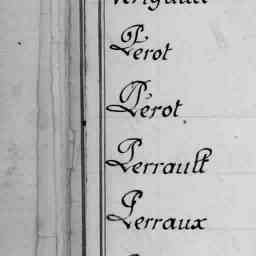 Perot
Perot
Perrault
Perraux